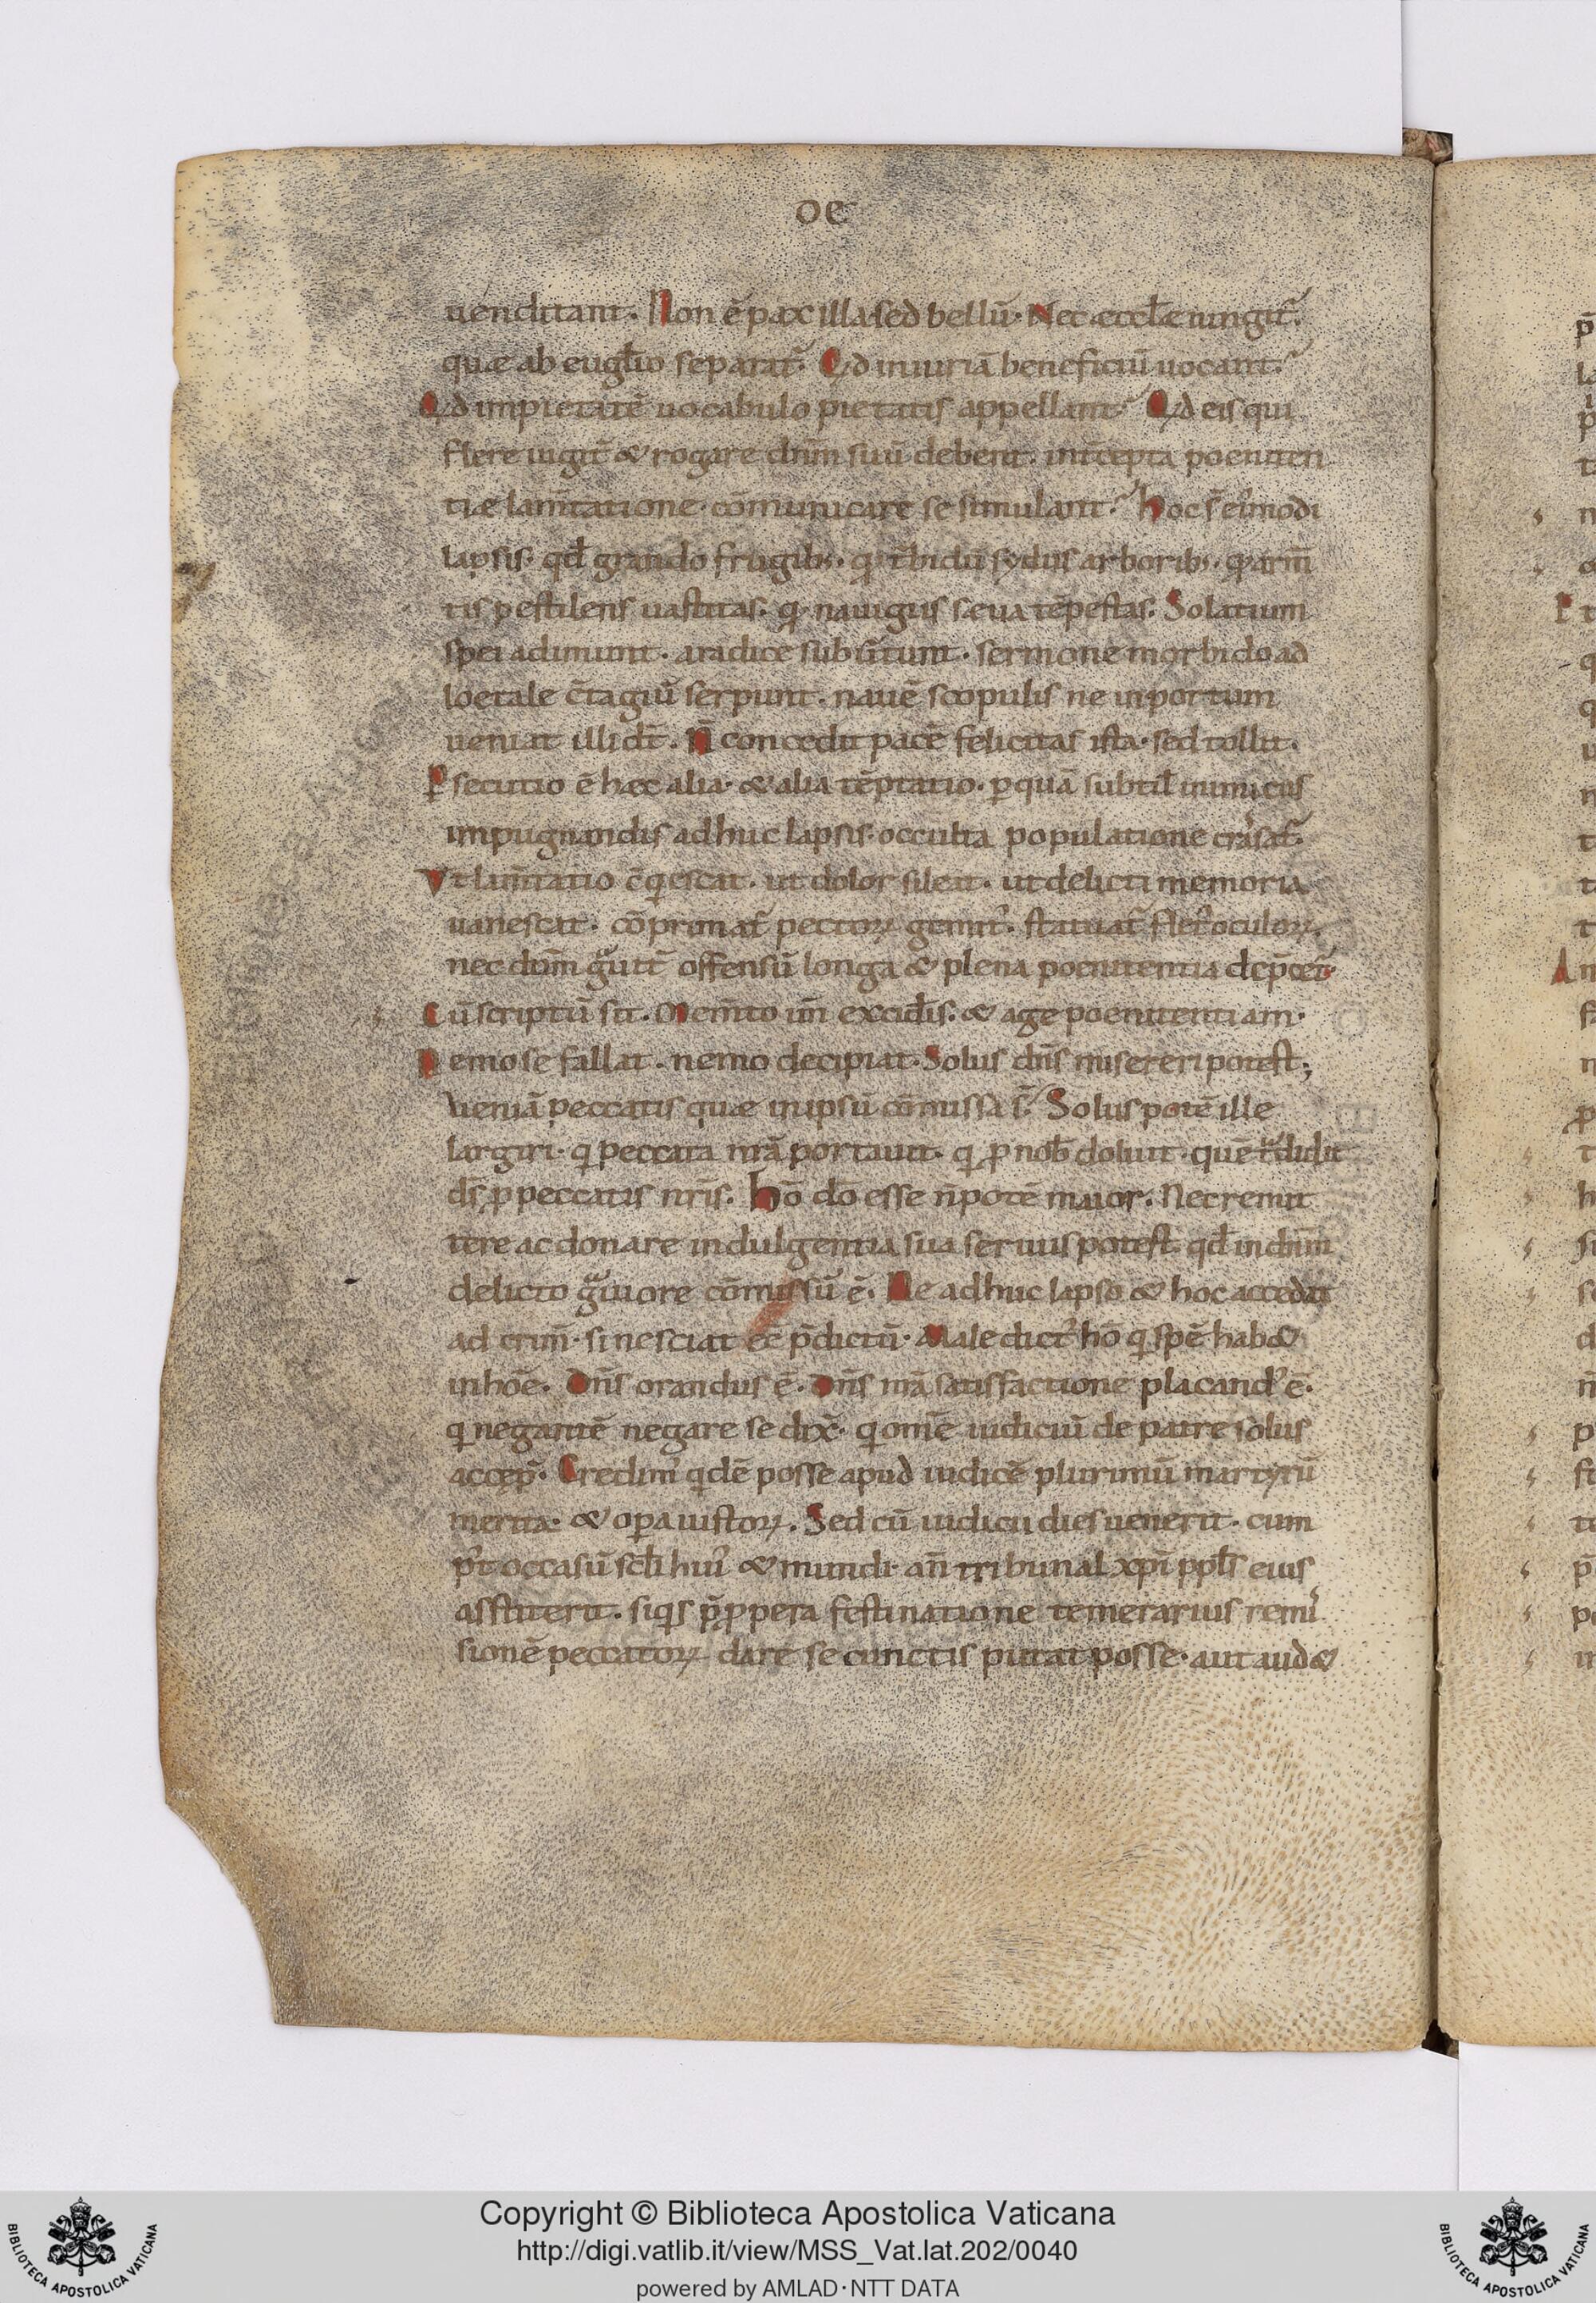 oe
uenditant. Non ē pax illa sed bellū. Nec æccl̄æ iungit᷑.
quæ ab eugl̄io separat᷑. Qd iniuriā beneficiū uocant?
Qd impietatē uocabulo pietatis appellant? Qd eis qui
flere iugit᷑ & rogare dnm̄ suū debent. int᷑cepta poeniten
tiæ lam̄tatione. cōmunicare se simulant? hoc s̄ ei'modi
lapsis. qd̄ grando frugib;. qd t᷑bidū sydus arborib;. qd arm̄
tis pestilens uastitas. qd nauigiis sæua tēpestas. Solatium
spei adimunt. aradice subu᷑tunt. sermone morbido ad
loetale c̄tagiū serpunt. nauē scopulis ne inportum
ueniat illidt̄. N̄ concedit pacē felicitas ista. sed tollit.
Ꝑsecutio ē hæc alia. & alia tēptatio. ꝑquā subtil̄ inimicus
impugnandis adhuc lapsis. occulta populatione crasat᷑.
Vt lam̄tatio c̄qescat. ut dolor sileat. ut delicti memoria
uanescat. cōprimat᷑ pectorꝝ gemit'. statuat᷑ flet' oculorꝝ.
nec dnm̄ guit᷑ offensū longa & plena poenitentia dep̄cet᷑.
Cū scriptū sit. Mem̄to un̄ excid̄is. & age poenitentiam.
Nemo se fallat. nemo decipiat. Solus dn̄s misereri potest;
Veniā peccatis quæ inipsū cōmissa s̄. Solus potē ille
largiri. q peccata nr̄a portauit. q ꝓ nob̄ doluit. quē tdidit
ds̄ ꝓ peccatis nr̄is. hō dō esse n̄ potē maior. Nec remit
tere ac donare indulgentia sua seruus potest. qd̄ indnm̄
delicto guiore cōmissū ē. Ne adhuc lapso & hoc accedat
ad crim̄. si nesciat ēē p̄dictū. Maledict' hō q spē hab&
inhōe. Dn̄s orandus ē. Dn̄s nr̄a satisfactione placand' ē.
q negantē negare se dix̄. q omē iudiciū de patre solus
accep̄. Credim' qdē posse apud iudicē plurimū martyrū
merita. & oꝑa iustorꝝ. Sed cū iudicii dies uenerit. cum
p't occasū scl̄i hui' & mundi. an̄ tribunal xp̄i ppl̄s eius
asstiterit. siqis p̄ꝓpera festinatione temerarius remi'
sionē peccatorꝝ dare se cunctis putat posse. aut aud&
Copyright © Biblioteca Apostolica Vaticana
http://digi.vatlib.it/view/MSS_Vat.lat.202/0040
powered by AMLAD·NTT DATA
BIBLIOTECA APOSTOLICA VATICANA
BIBLIOTECA APOSTOLICA VATICANA